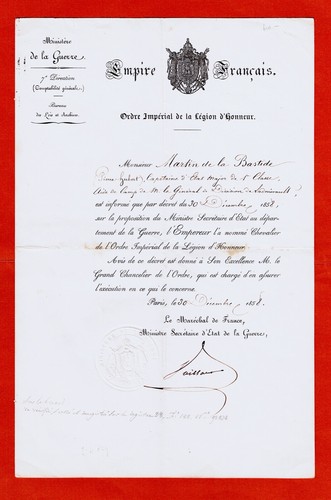 Ministère
de la Guerre.
7e Direction
(Comptabilité générale.)
Bureau
des Lois et Archives
Empire Français.
Ordre Impérial de la Légion d'Honneur.
Monsieur Martin de la Bastide
Capitaine d'État major de 1e Classe
Aide de Camp de M. le Général de Division de
est informé que par décret du 30 Décembre 1858,
sur la proposition du Ministre Secrétaire d'État au dépar-
tement de la Guerre, l'Empereur l'a nommé Chevalier
de l'Ordre Impérial de la Légion d'Honneur.
Avis de ce décret est donné à Son Excellence M. le
Grand Chancelier de l'Ordre, qui est chargé d'en assurer
l'exécution en ce qui le concerne.
Paris, le 30 Décembre 1858.
Le Maréchal de France,
Ministre Secrétaire d'État de la Guerre,
Vaillant